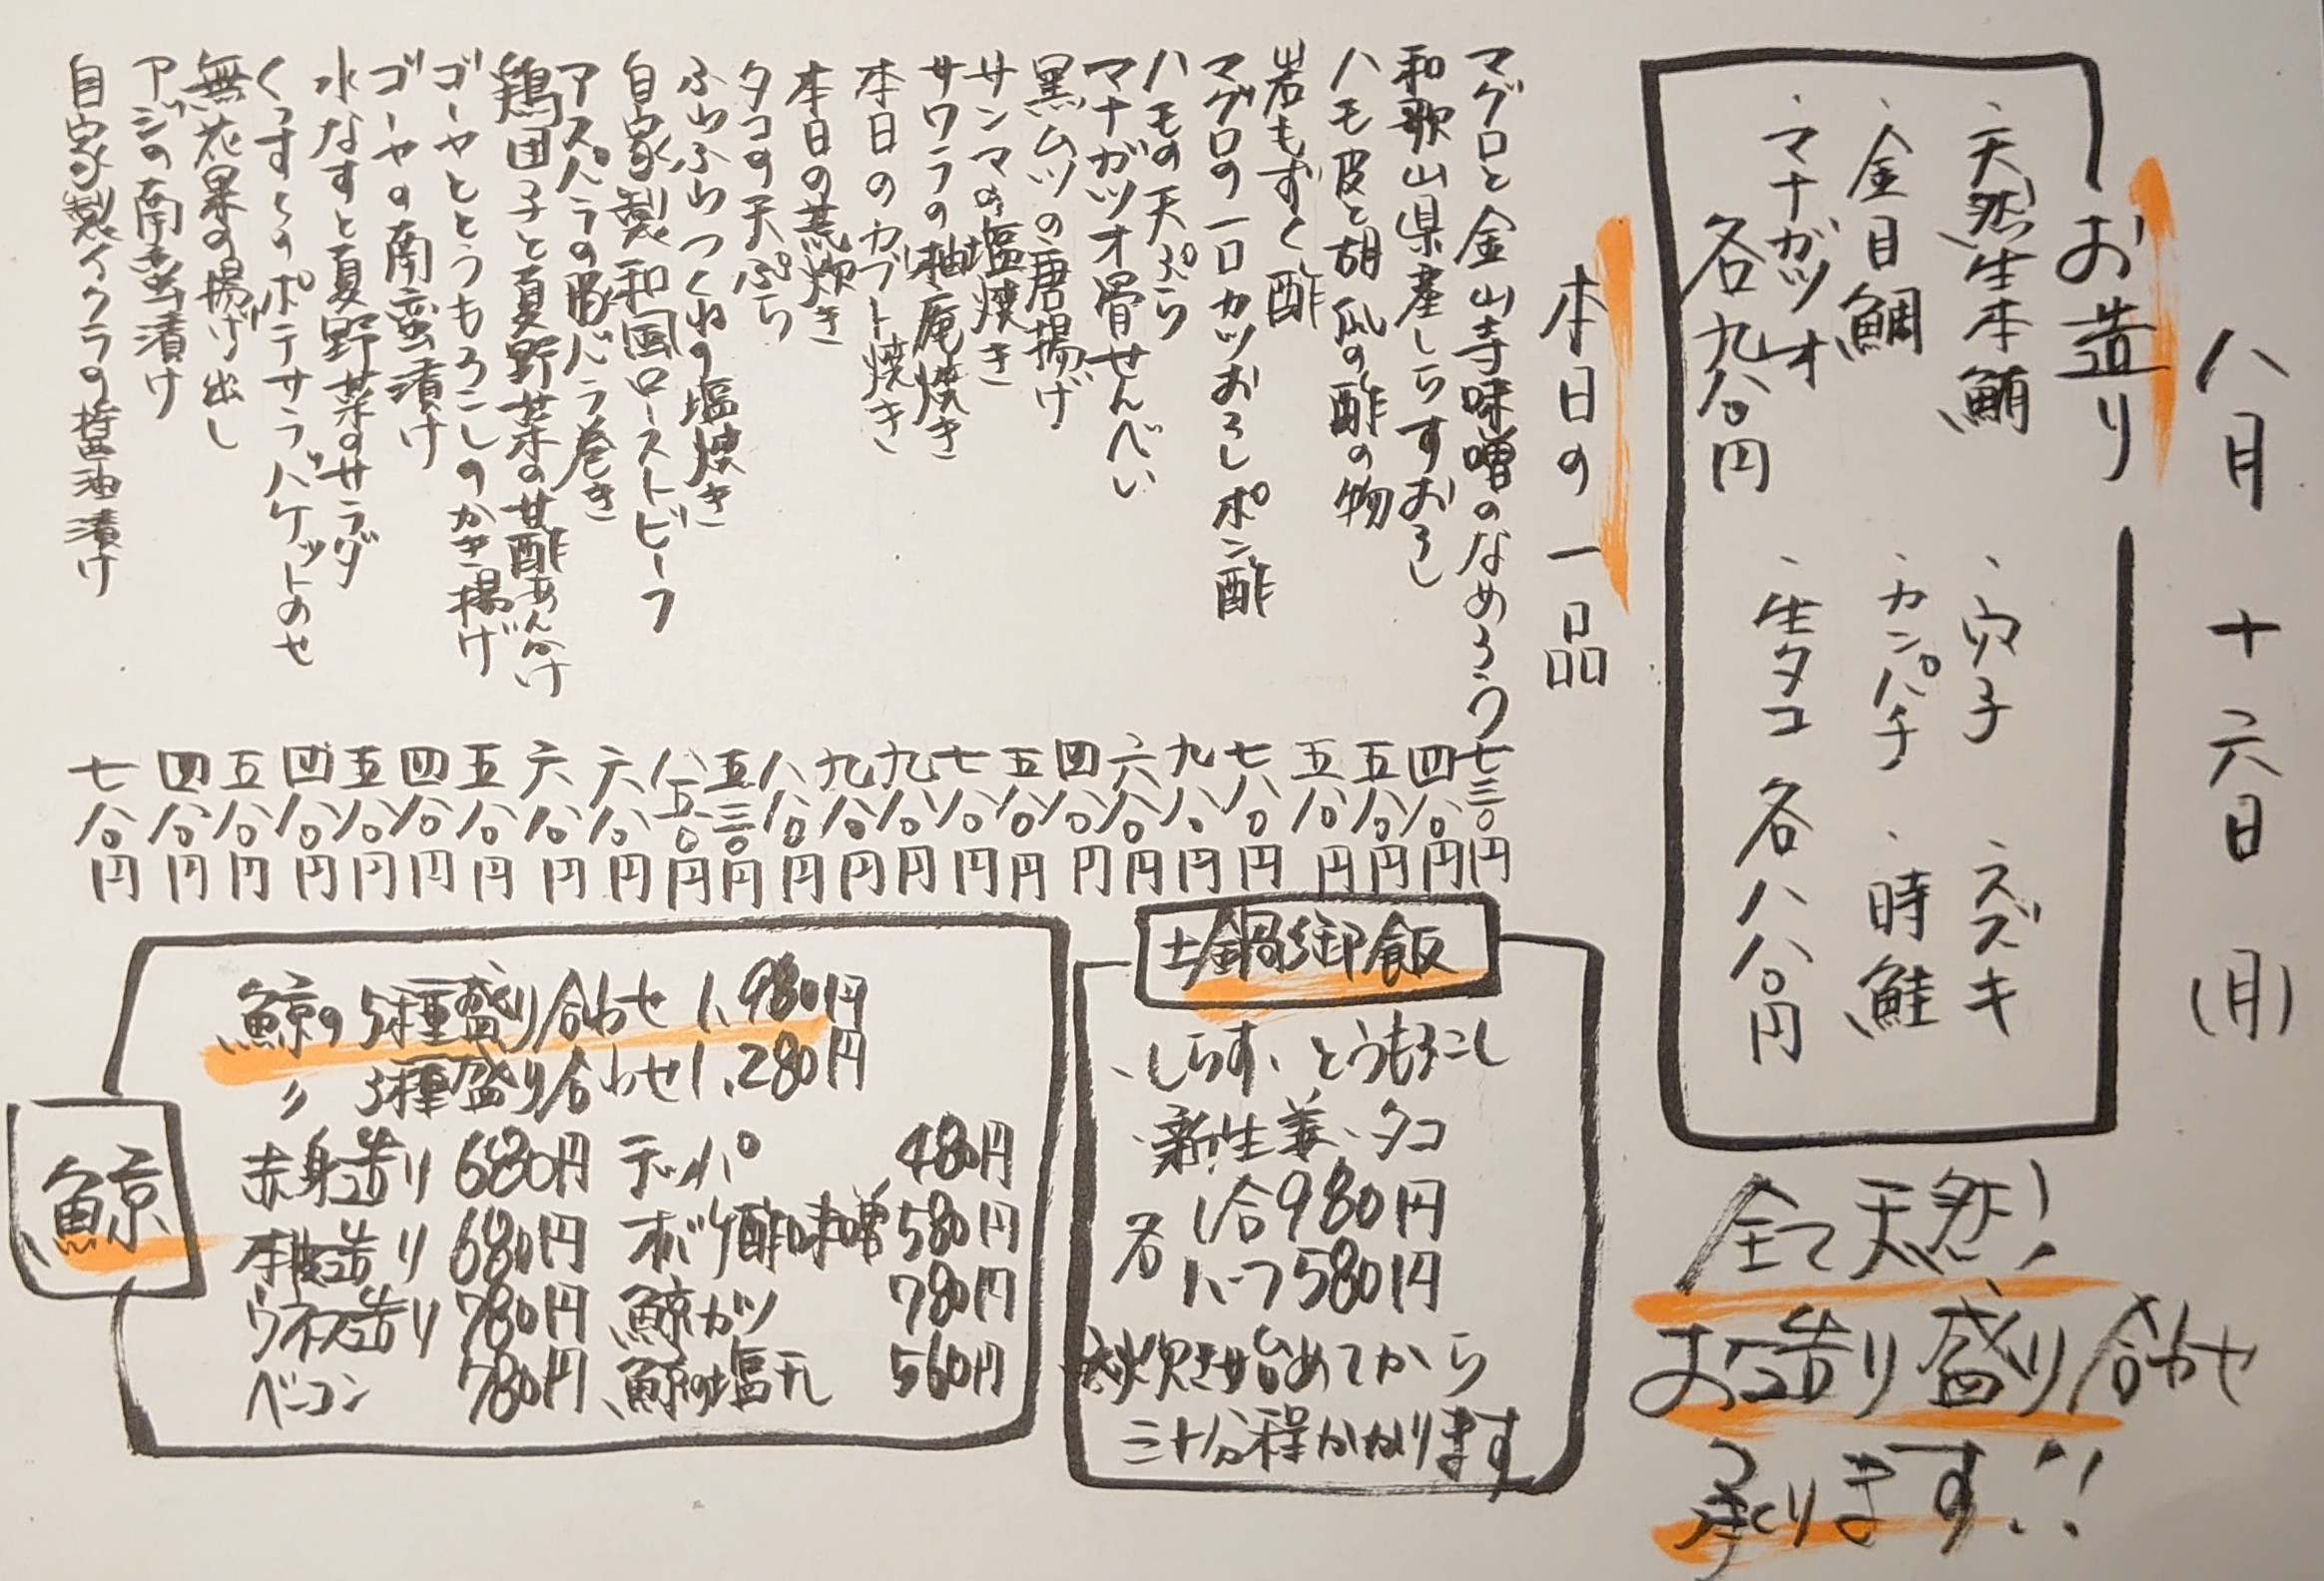 八月十六日(月)
お造り
・天然生本鮪 ・穴子 ・スズキ
・金目鯛 ・カンパチ ・時鮭
・マナガツオ ・生タコ 各八八〇円
各九八〇円
全て天然!
お造り盛り合わせ
承ります!!
本日の一品
マグロと金山寺味噌のなめろう 七三〇円
和歌山県産しらすおろし 四八〇円
ハモ皮と胡瓜の酢の物 五八〇円
岩もずく酢 五八〇円
マグロの一口カツおろしポン酢 七八〇円
ハモの天ぷら 九八〇円
マナガツオ骨せんべい 六八〇円
黒ムツの唐揚げ 四八〇円
サンマの塩焼き 五八〇円
サワラの柚庵焼き 七八〇円
本日のカブト焼き 九八〇円
本日の荒炊き 九八〇円
タコの天ぷら 八八〇円
ふわふわつくねの塩焼き 五三〇円
自家製和風ローストビーフ 八五〇円
アスパラの豚バラ巻き 六八〇円
鶏団子と夏野菜の甘酢あんかけ 六八〇円
ゴーヤととうもろこしのかき揚げ 五八〇円
ゴーヤの南蛮漬け 四八〇円
水なすと夏野菜のサラダ 五八〇円
ポテサラバケットのせ 四八〇円
無花果の揚げ出し 五八〇円
アジの南蛮漬け 四八〇円
自家製イクラの醤油漬け 七八〇円
土鍋御飯
・しらす、とうもろこし
・新生姜、タコ
各 1合980円
ハーフ580円
炊き始めてから
三十分程かかります
鯨
鯨の5種盛り合わせ 1,980円
〃 3種盛り合わせ 1,280円
赤身造り 680円 テッパ 480円
本皮造り 680円 オバケ酢味噌 580円
ウネス造り 780円 鯨カツ 780円
ベーコン 780円 鯨の塩タレ 560円